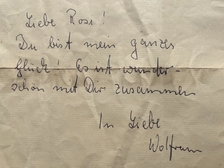 Liebe Rose!
Du bist mein ganzes
Glück! Es ist wunder-
schön mit Dir zusammen
In Liebe
Wolfram